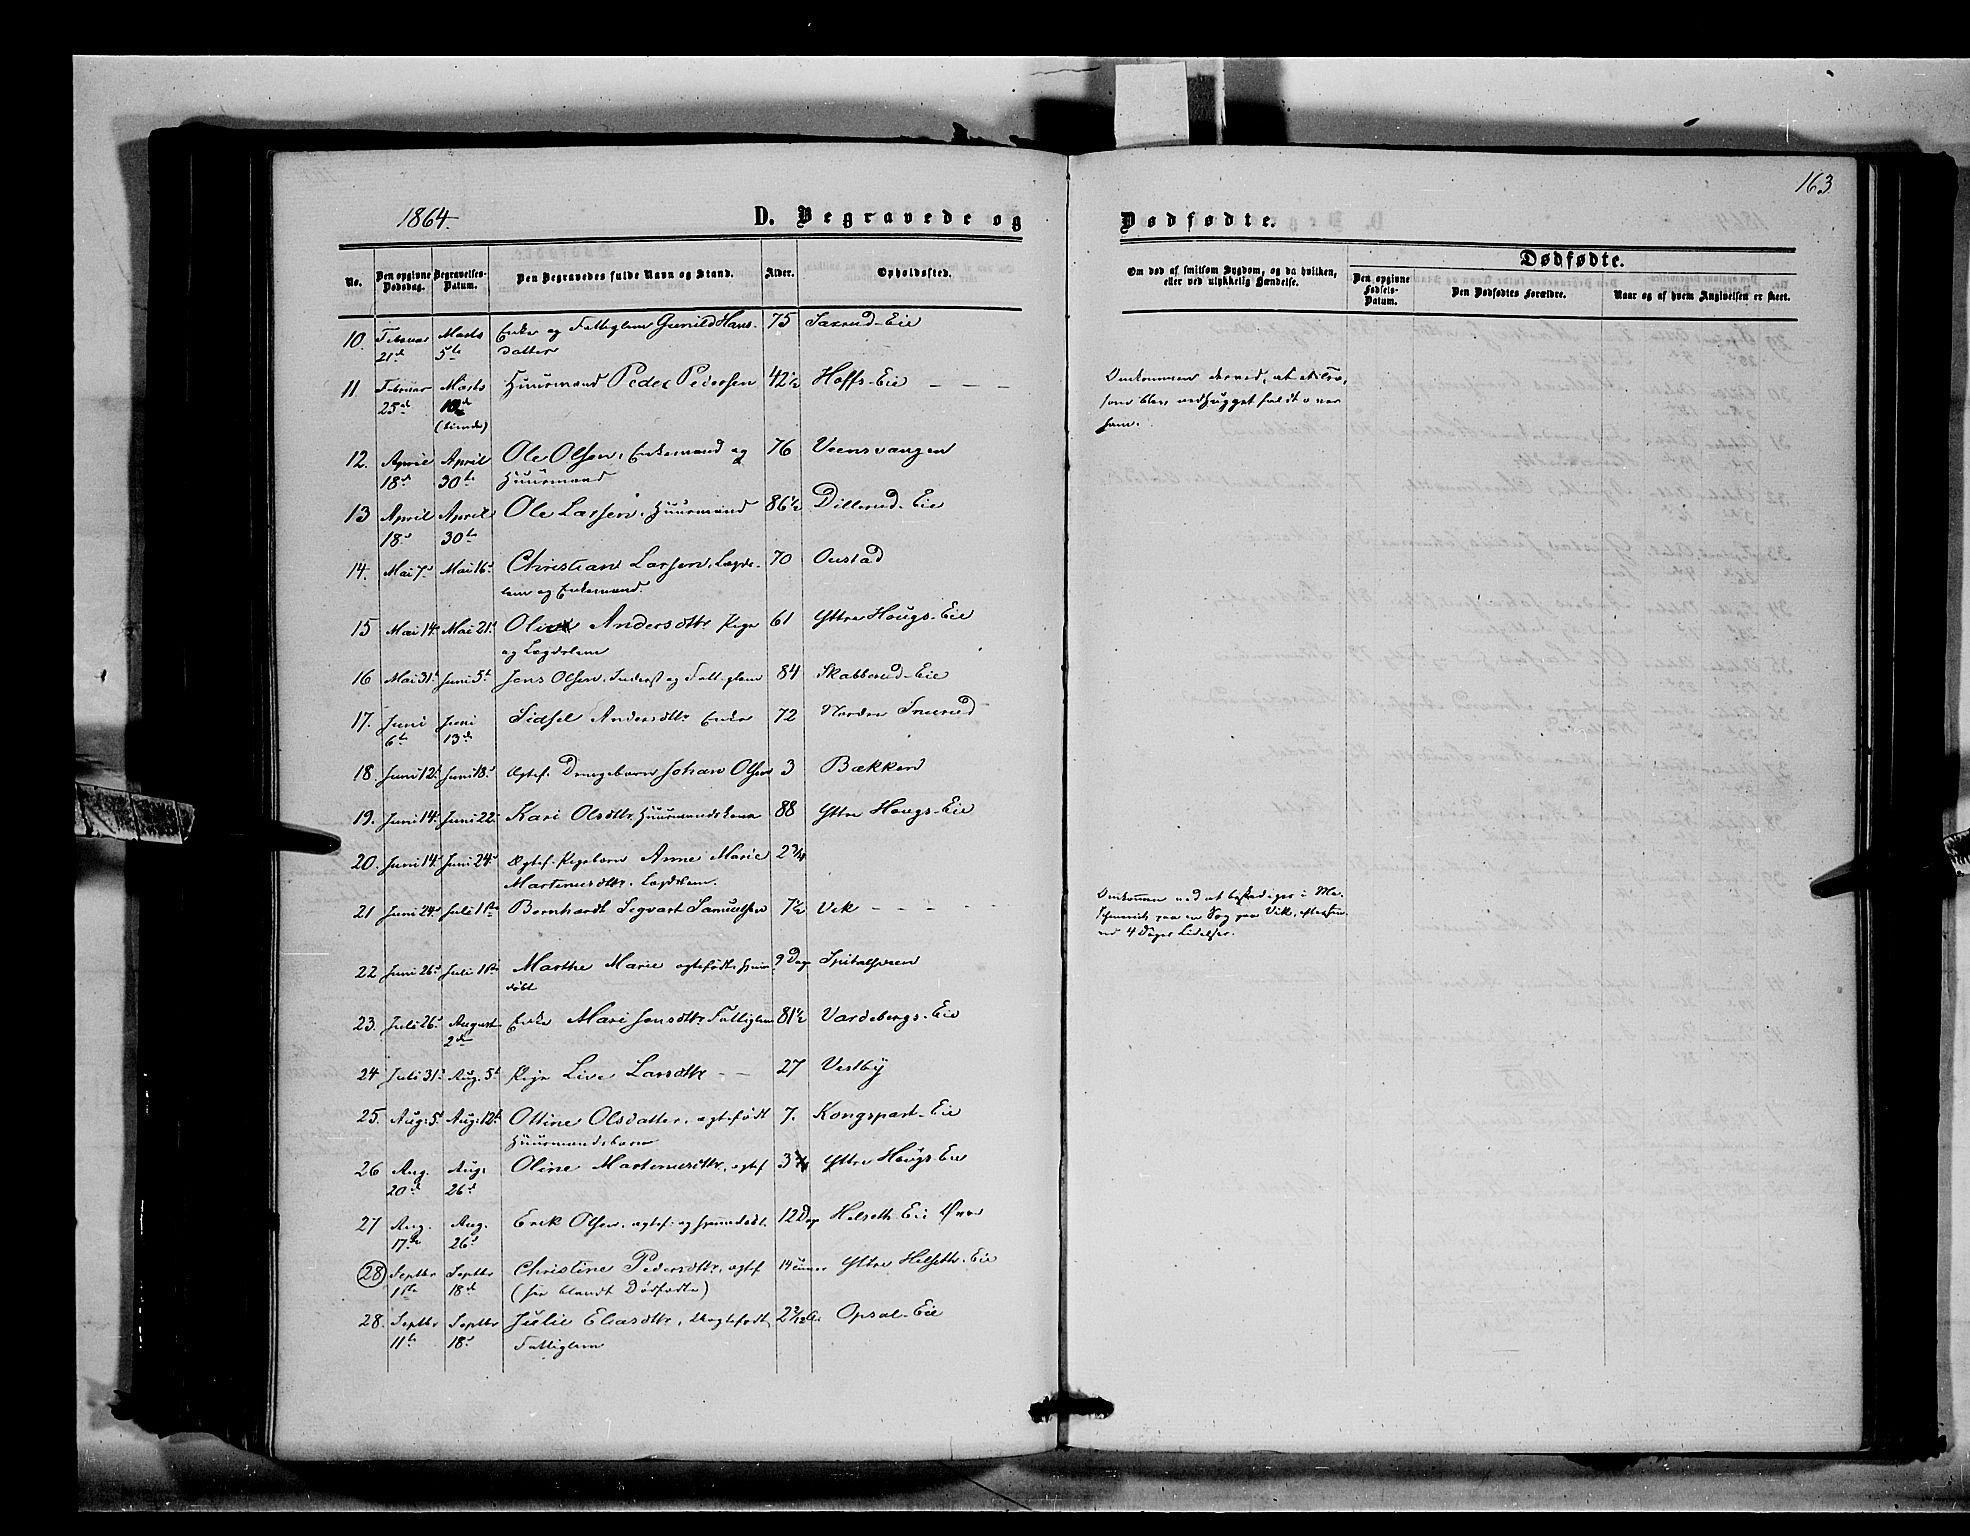 163
1864. D. Begravede og Dødfødte.
No. Den opgivne Dødsdag. Begravelses-Datum. Den Begravedes fulde Navn og Stand. Alder. Opholdssted.
Om død af smitsom Sygdom, og da hvilken, eller ved ulykkelig Hændelse. Dødfødte. Den opgivne Fødsels-Datum. Den Dødfødtes Forældre. Naar og af hvem Angivelsen er skeet.
10. Februar 21de Marts 5te Enke og Fattiglem Gunild Hans- 75 Saxrud-Eie
datter
11 Februar 25de Marts 10de Huusmand Peder Pedersen 42½ Hoffs-Eie — — — Omkommen derved, at
(tiende)
12. April 18de April 30te Ole Olsen, Enkemand og 76 Veensvangen
Huusmand
13 April 18de April 30te Ole Larsen, Huusmand 86½ Dillerud-Eie
14. Mai 7de Mai 16de Christian Larsen, Lægds- 70 Oustad
lem og Enkemand.
15 Mai 14de Mai 21de Andersdtr. Pige 61 Yttre Hougs-Eie
og Lægdslem
16 Mai 31te Juni 5te Jens Olsen, Inderst og Fattiglem 84 Skabberud-Eie
17. Juni 6te Juni 13de Sidsel Andersdtr. Enke 72 Nordre
18. Juni 12te Juni 18de Ægtef. Drengebarn Johan Olsen 3 Bækken
19. Juni 14de Juni 22de Kari Olsdtr. Huusmandskone 88 Yttre Hougs-Eie
20. Juni 14de Juni 24de Ægtef. Pigebarn Anne Marie 2¾
Martinusdtr. Lægdslem.
21 Juni 24de Juli 1ste Bernhardt Segvart Samuelsen 7½ Vek — — — Omkommen ved at beskadiges i Ma-
paa en Sag paa Vik,
4 Dages Lidelser.
22 Juni 26de Juli 1ste Marthe Marie ægtefødt, hjem- 9 Dage
døbt
23. Juli 26de August 2den Enke Mari Jensdtr. Fattiglem 81½ Vardebergs-Eie
24 Juli 31te Aug. 5te Pige Live Larsdtr. — — 27 Vestby
25. Aug. 5te Aug. 12te Ottine Olsdatter, ægtefødt 7. Kongspart-Eie
Huusmandsbarn
26 Aug. 20de Aug. 26de Oline Martinusdtr. ægtef. 3¾ Yttre Hougs-Eie
27 Aug. 17de Aug. 26de Erik Olsen, ægtef. og hjemmedøbt. 12 Dage Helseth-Eie Øvre
28 Septbr 11te Septbr 18de Christine Pedersdtr. ægtef. Yttre Helseth-Eie
(før blandt Dødfødte)
28. Septbr 11te Septbr 18de Julie Eliasdtr. uægtefødt, Opsal-Eie
Fattiglem